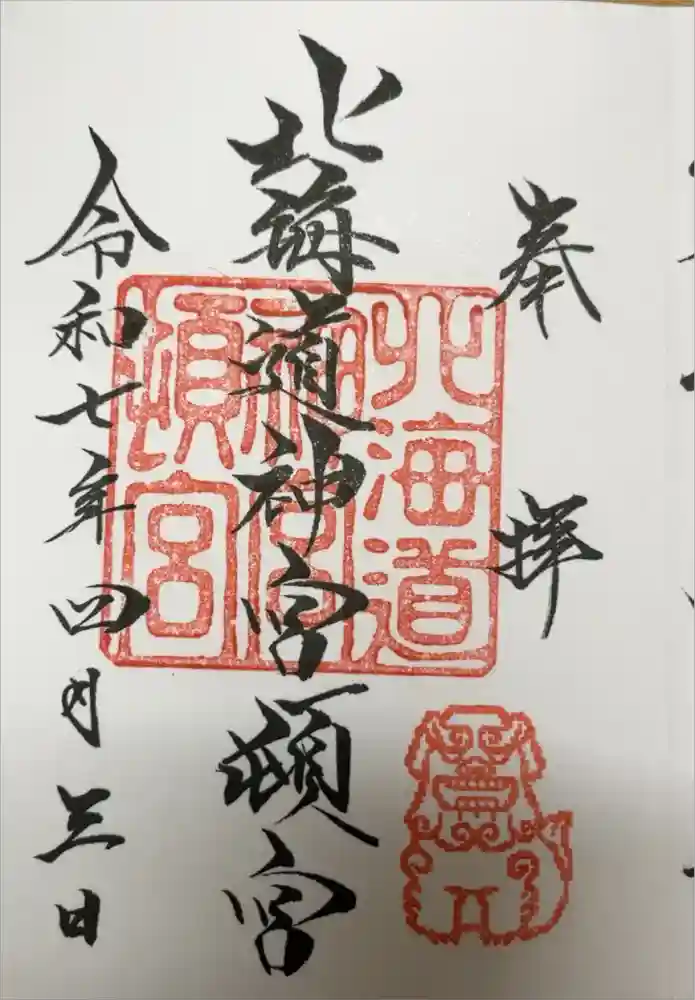 奉拝
北海道神宮頓宮
令和七年四月三日
北海道
神宮
頓宮